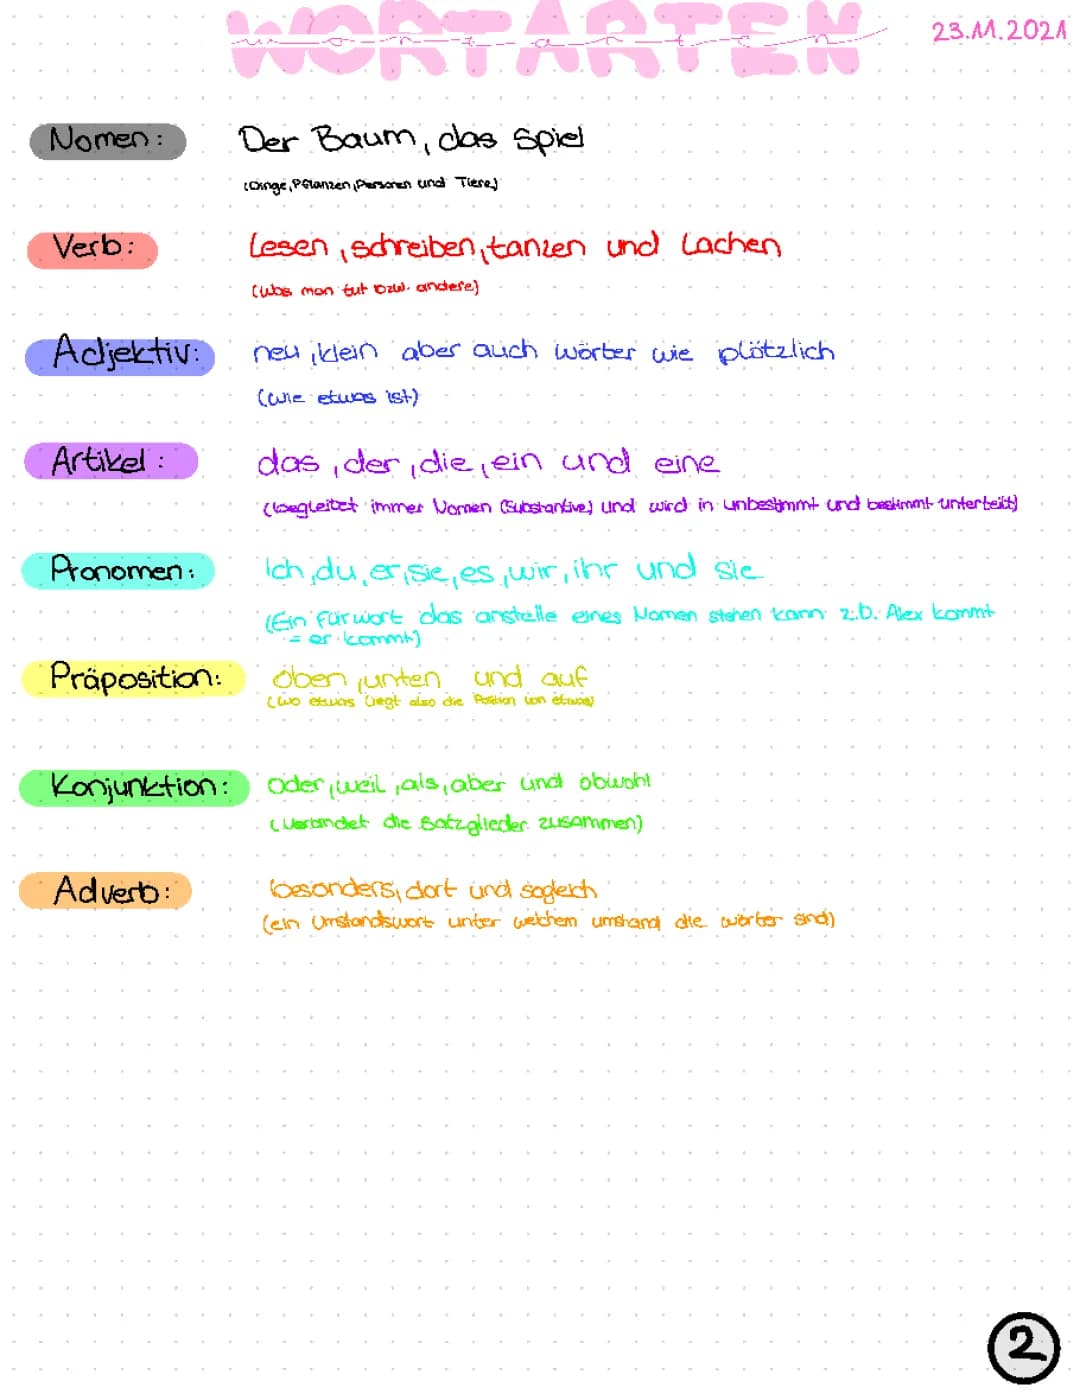 WORTARTEN 23.11.2021
wortarten
Nomen: Der Baum, das Spiel
(Dinge, Pflanzen, Personen und Tiere)
Verb: Lesen, schreiben, tanzen und Lachen
(Was man tut bzw. andere)
Adjektiv: neu, klein aber auch wörter wie plötzlich
(wie etwas ist)
Artikel: das, der, die, ein und eine
(begleitet immer Nomen (Substantive) und wird in unbestimmt und bestimmt unterteilt)
Pronomen: Ich, du, er, sie, es, wir, ihr und sie
(Ein Fürwort das anstelle eines Nomen stehen kann z.B. Alex kommt
= er kommt)
Präposition: Oben, unten und auf
(wo etwas liegt also die Position von etwas)
Konjunktion: Oder, weil, als, aber und obwohl
(Verbindet die Satzglieder zusammen)
Adverb: besonders, dort und sogleich
(ein Umstandswort unter welchem umstand die wörter sind)
2